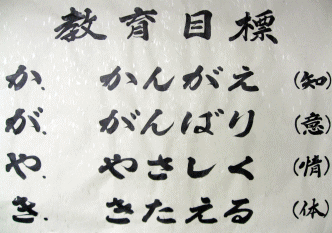 教育目標
か. かんがえ (知)
が. がんばり (意)
や. やさしく (情)
き. きたえる (体)